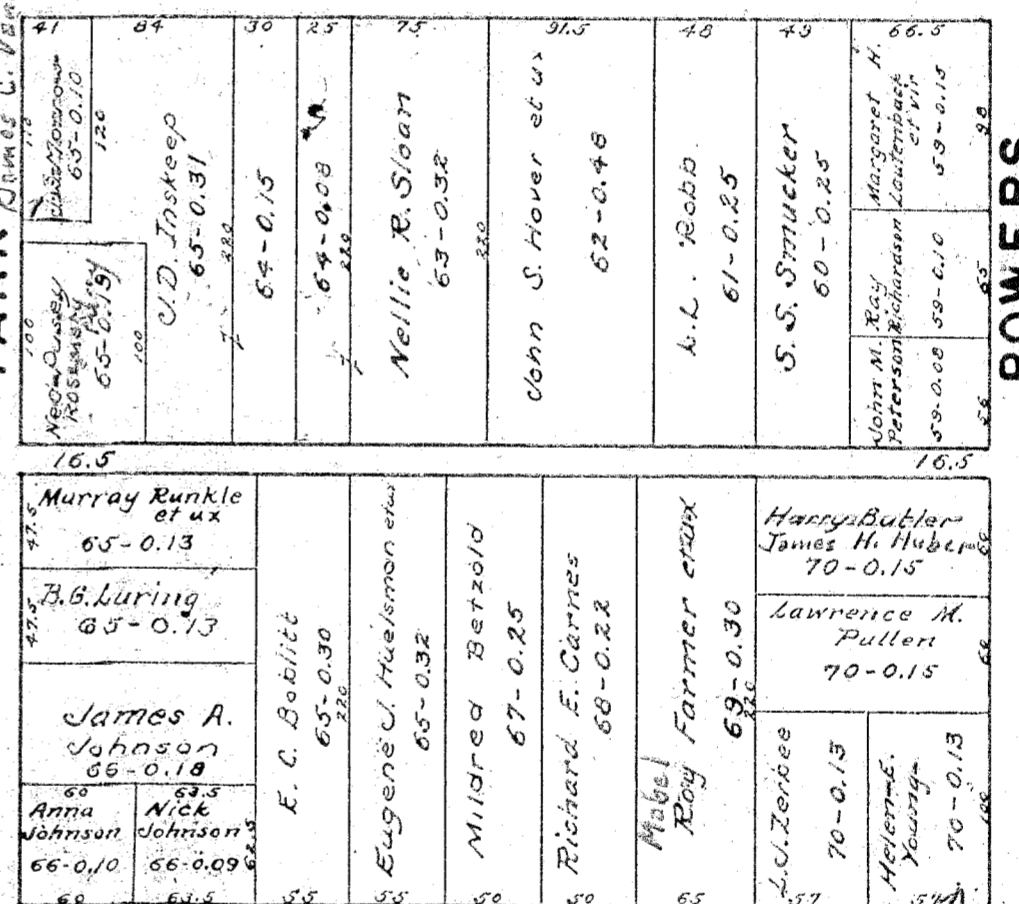 41 84 30 25 75 91.5 48 49 66.5
James C. Van
65-0.10
120
Ned Pusey
Rosemary
65-0.19
100
100
J.D. Inskeep
65-0.31
220
64-0.15
64-0.08
220
Nellie R. Sloan
63-0.32
220
John S. Hover et ux
62-0.48
L.L. Robb
61-0.25
S. S. Smucker
60-0.25
Margaret H.
Lautenback
et vir
59-0.15
98
Ray
Richardson
59-0.10
65
John M.
Peterson
59-0.08
56
POWERS
16.5 16.5
Murray Runkle
et ux
65-0.13
47.5
B.G. Luring
65-0.13
47.5
James A.
Johnson
66-0.18
60 63.5
Anna
Johnson
66-0.10
60
Nick
Johnson
66-0.09
62.5
63.5
E. C. Boblitt
65-0.30
220
55
Eugene J. Huelsman et ux
65-0.32
55
Mildred Betzold
67-0.25
50
Richard E. Carnes
68-0.22
50
Mabel
Roy Farmer et ux
69-0.30
220
65
Harry Butler
James H. Huber
70-0.15
60
Lawrence M.
Pullen
70-0.15
60
L.J. Zerkee
70-0.13
57
Helen E.
Young
70-0.13
100